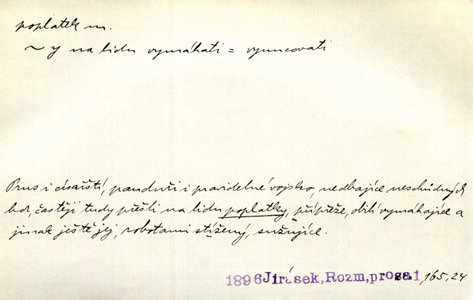 poplatek m.
~ y na lidu vymáhati = vynucovati
Prus i císařští, panduři i pravidelné vojsko, nedbajíce neschůdných
hor, častěji tudy přešli na lidu poplatky, přípřeže, obilí vymáhajíce a
jinak ještě jej, robotami stížený, sužujíce.
1896 Jirásek, Rozm, prosa 1, 165, 24